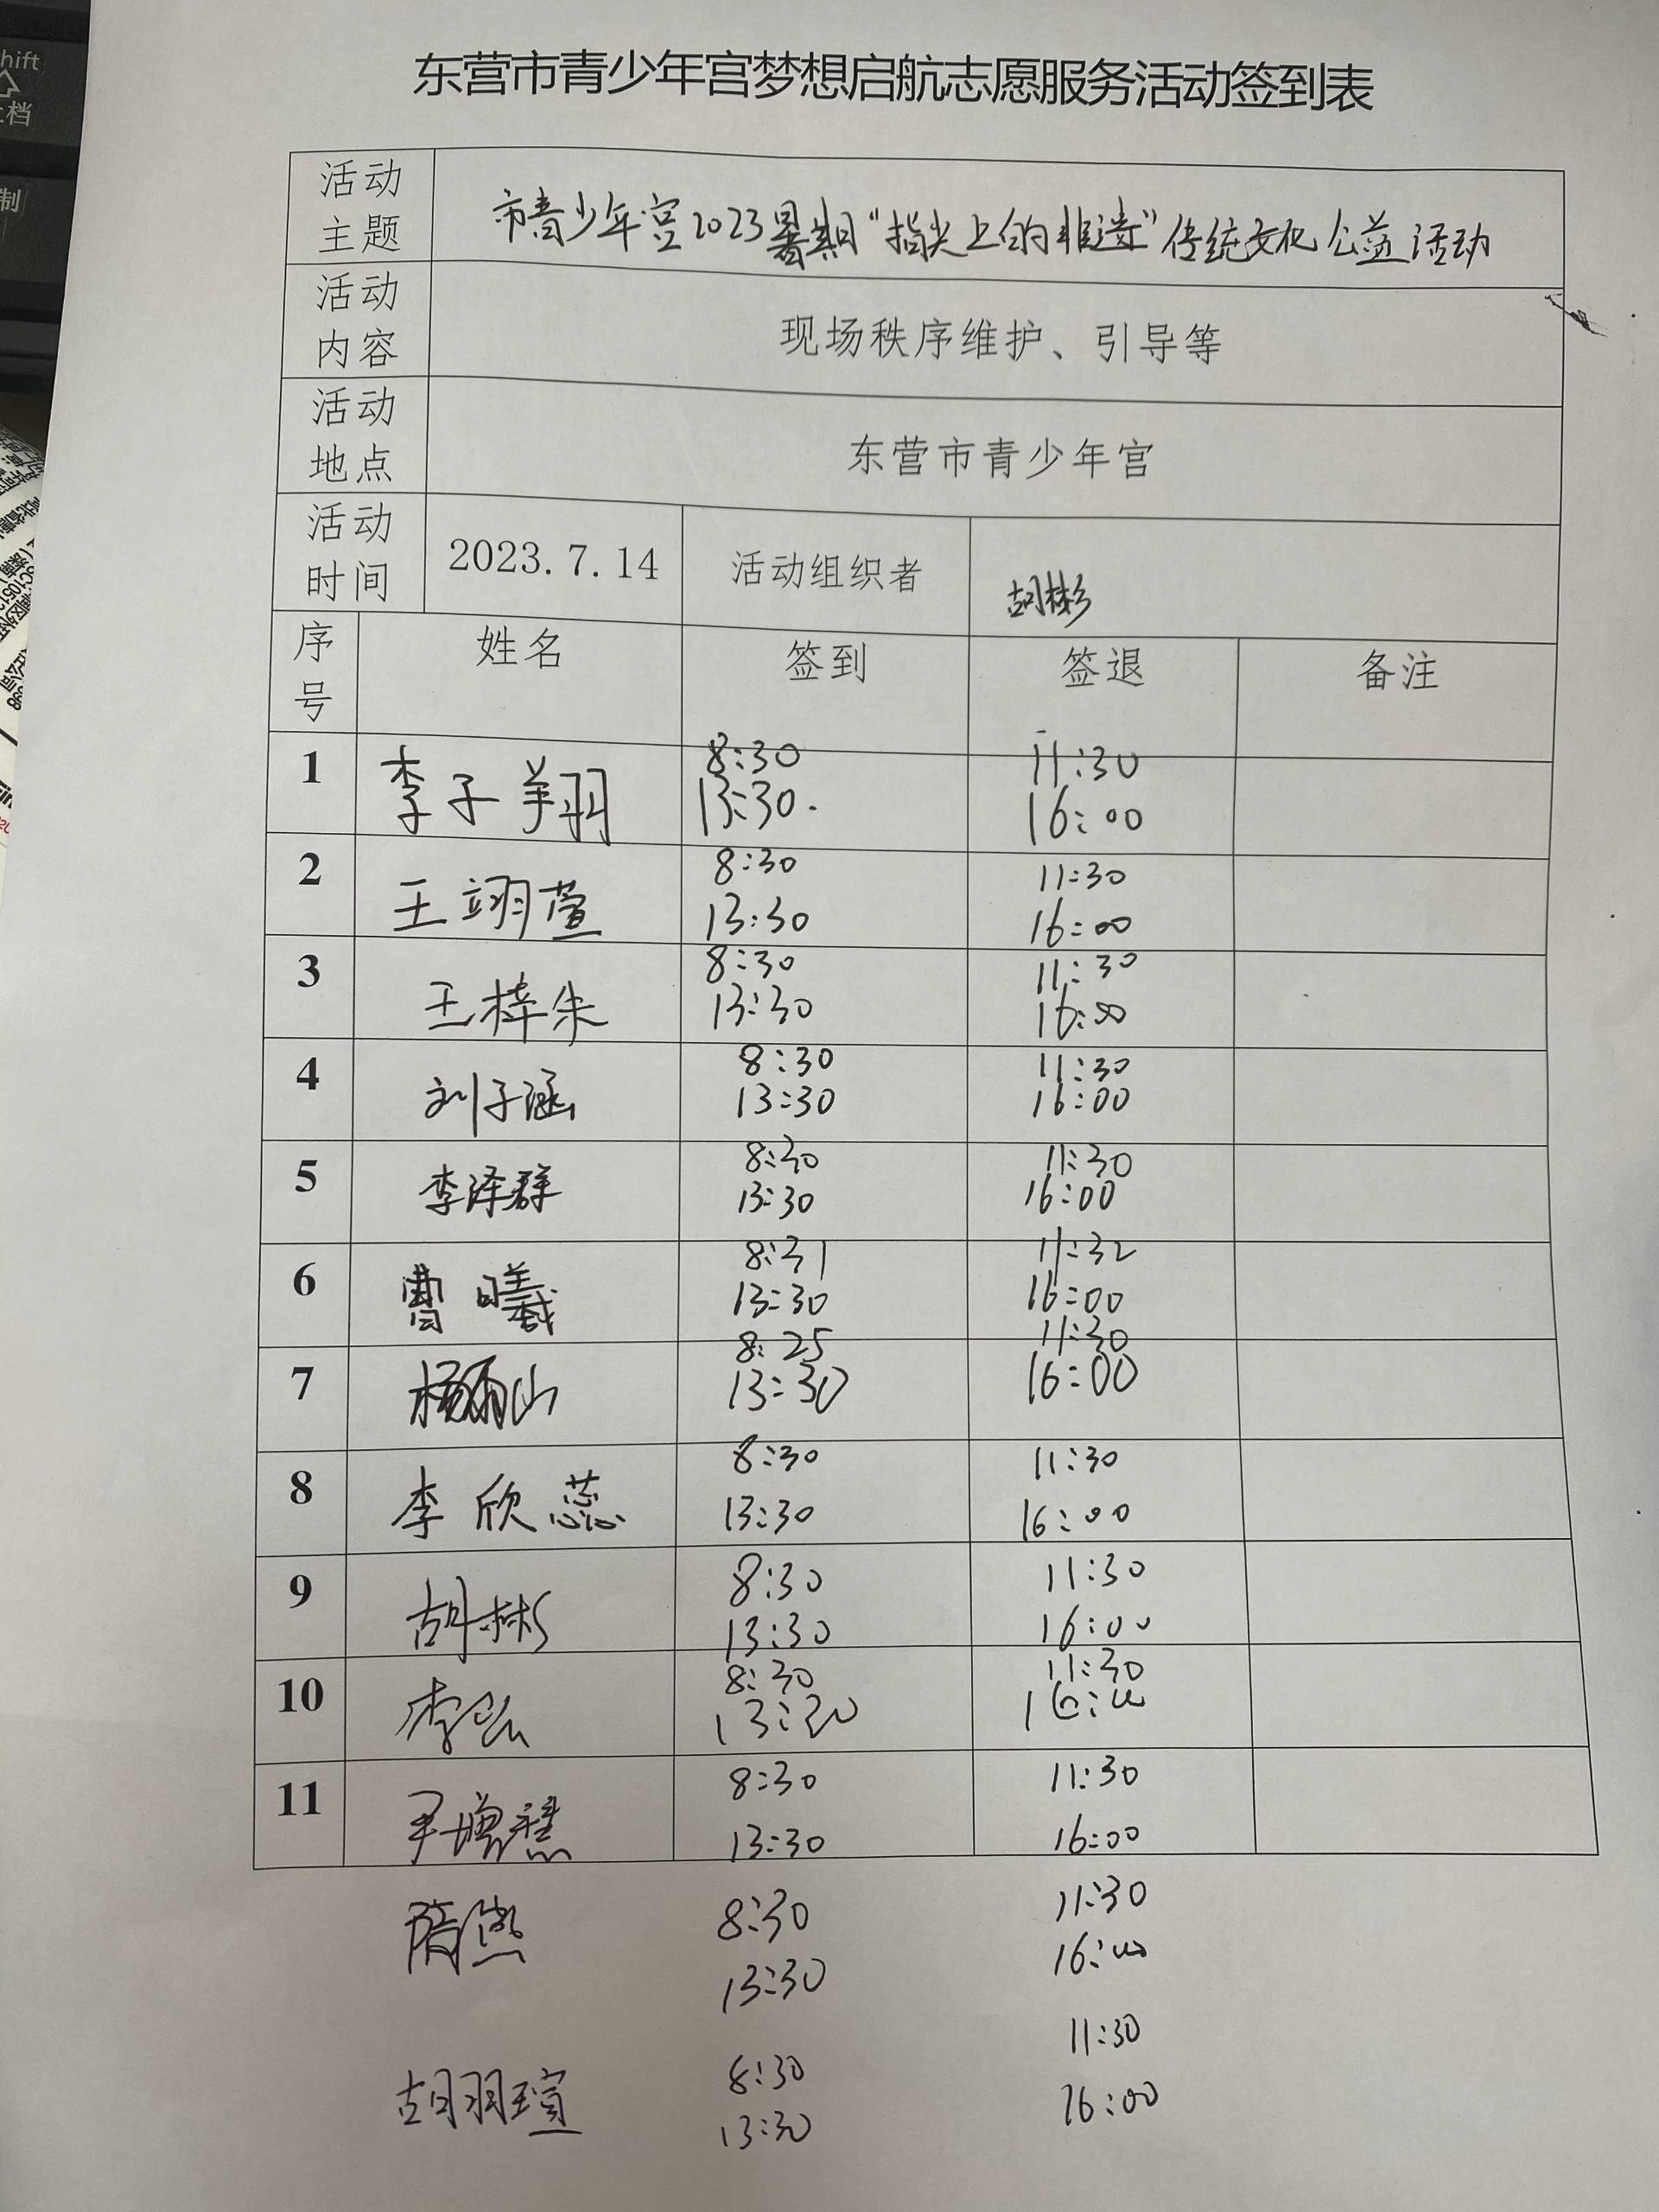 hift
档
制
东营市青少年宫梦想启航志愿服务活动签到表
活动主题 市青少年宫2023暑期“指尖上的非遗”传统文化公益活动
活动内容 现场秩序维护、引导等
活动地点 东营市青少年宫
活动时间 2023.7.14 活动组织者 胡彬
序号 姓名 签到 签退 备注
1 李子翔 8:30 11:30
13:30. 16:00
2 王翊萱 8:30 11:30
13:30 16:00
3 王梓朱 8:30 11:30
13:30 16:00
4 刘子涵 8:30 11:30
13:30 16:00
5 李泽群 8:30 11:30
13:30 16:00
6 曹曦 8:31 11:32
13:30 16:00
7 杨雨山 8:25 11:30
13:30 16:00
8 李欣蕊 8:30 11:30
13:30 16:00
9 胡彬 8:30 11:30
13:30 16:00
10 李弘 8:30 11:30
13:30 16:00
11 尹增慧 8:30 11:30
13:30 16:00
隋 8:30 11:30
13:30 16:00
胡羽瑄 8:30 11:30
13:30 16:00